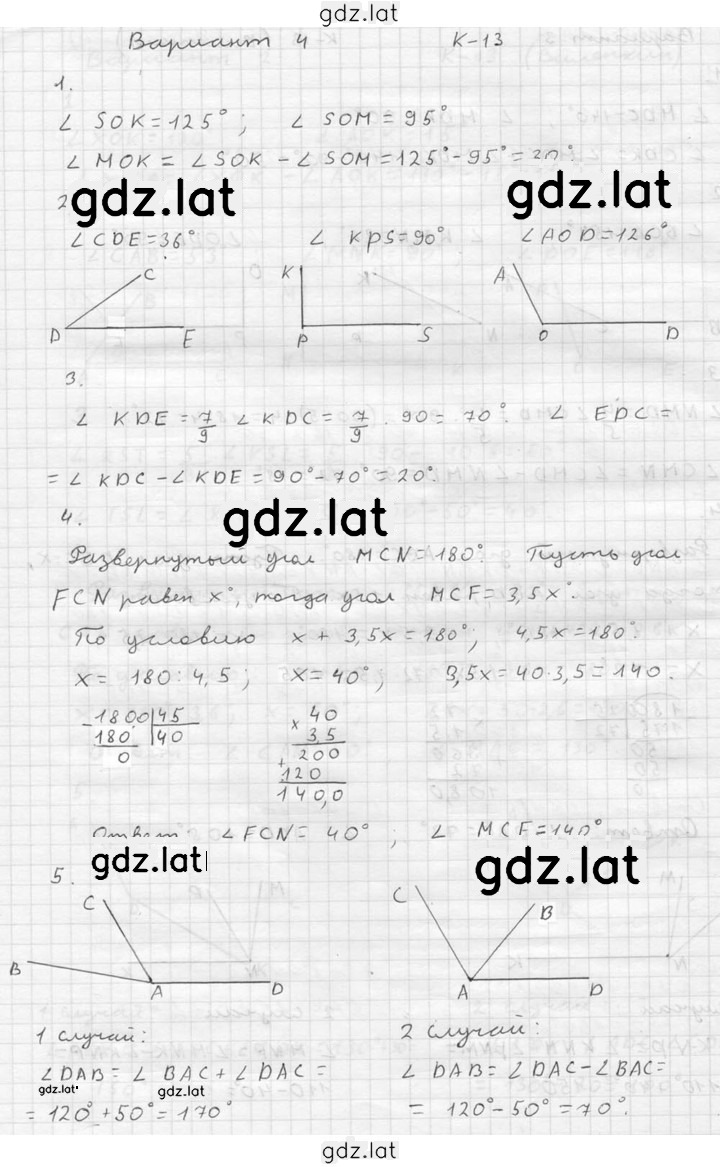 gdz.lat
Вариант 4 К-13
1.
∠ SOK = 125°; ∠ SOM = 95°
∠ MOK = ∠ SOK - ∠ SOM = 125° - 95° = 30°.
2
gdz.lat gdz.lat
∠ CDE = 36° ∠ KPS = 90° ∠ AOD = 126°
C K A
D E P S O D
3.
∠ KDE = 7/9 ∠ KDC = 7/9 · 90 = 70°. ∠ EDC =
= ∠ KDC - ∠ KDE = 90° - 70° = 20°.
4. gdz.lat
Развернутый угол MCN = 180°. Пусть угол
FCN равен x°, тогда угол MCF = 3,5x°.
По условию x + 3,5x = 180°; 4,5x = 180°.
x = 180 : 4,5; x = 40°; 3,5x = 40·3,5 = 140.
- 1800 | 45 × 40
180 | 40 3,5
0 + 200
120
140,0
Ответ ∠ FCN = 40°; ∠ MCF = 140°
gdz.lat gdz.lat
5. C C B
B A D A D
1 случай: 2 случай:
∠ DAB = ∠ BAC + ∠ DAC = ∠ DAB = ∠ DAC - ∠ BAC =
gdz.lat gdz.lat
= 120° + 50° = 170° = 120° - 50° = 70°.
gdz.lat